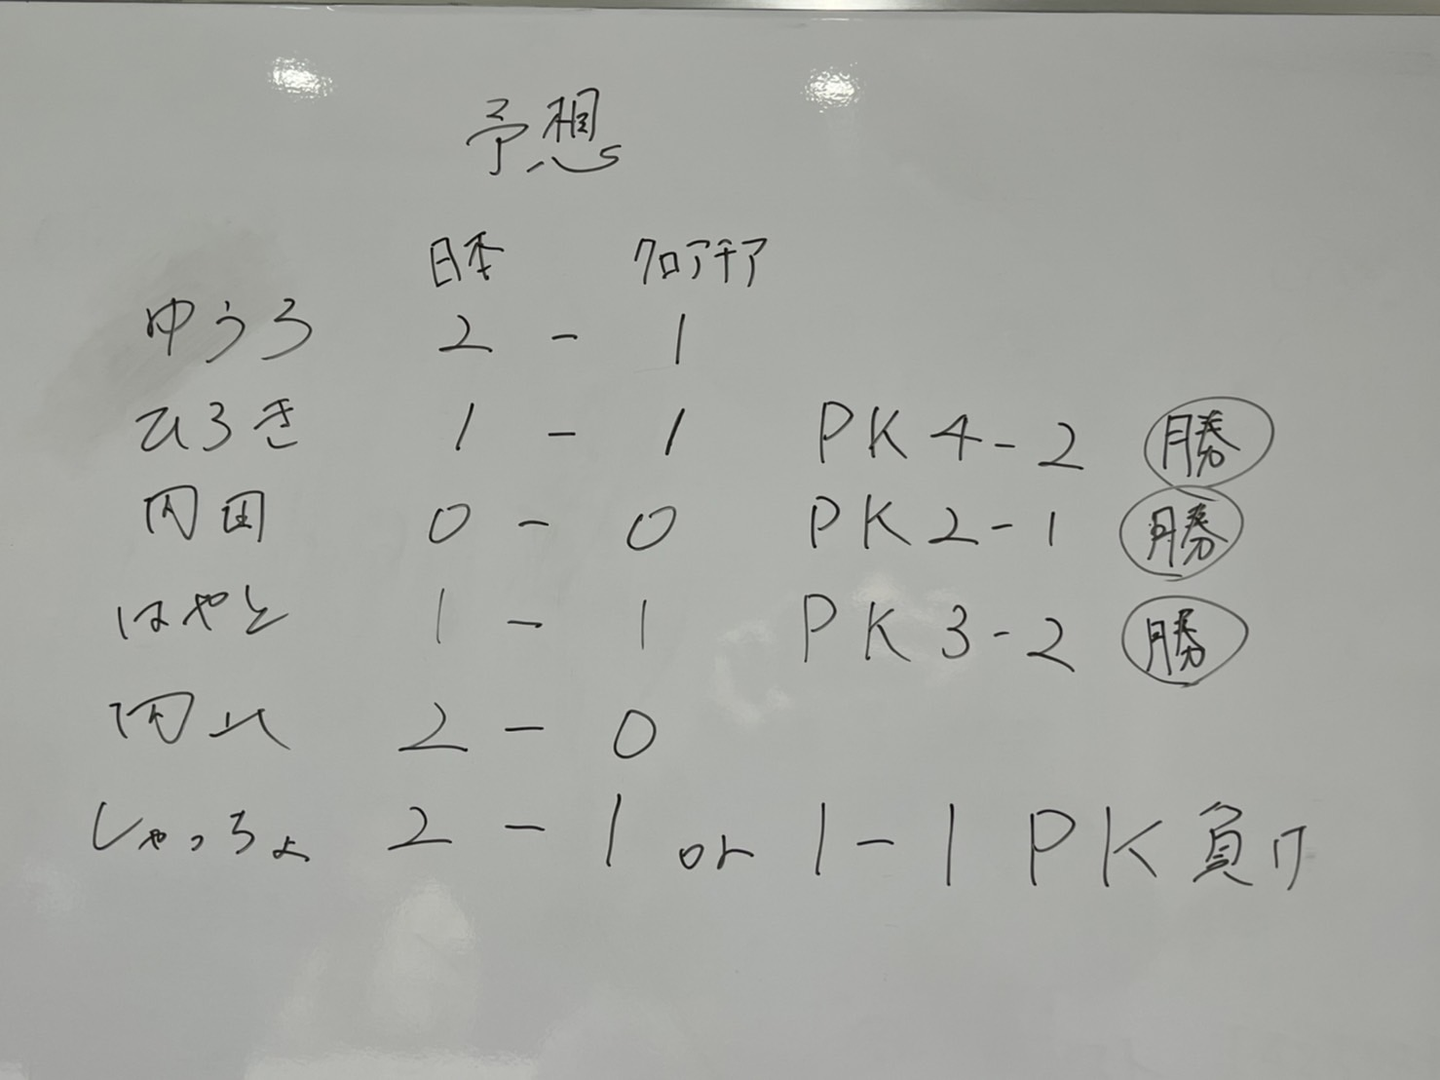 予想
日本 クロアチア
ゆうろ 2 - 1
ひろき 1 - 1 PK 4-2 勝
内田 0 - 0 PK 2-1 勝
はやと 1 - 1 PK 3-2 勝
内山 2 - 0
しゃっちょ 2 - 1 or 1-1 PK 負け